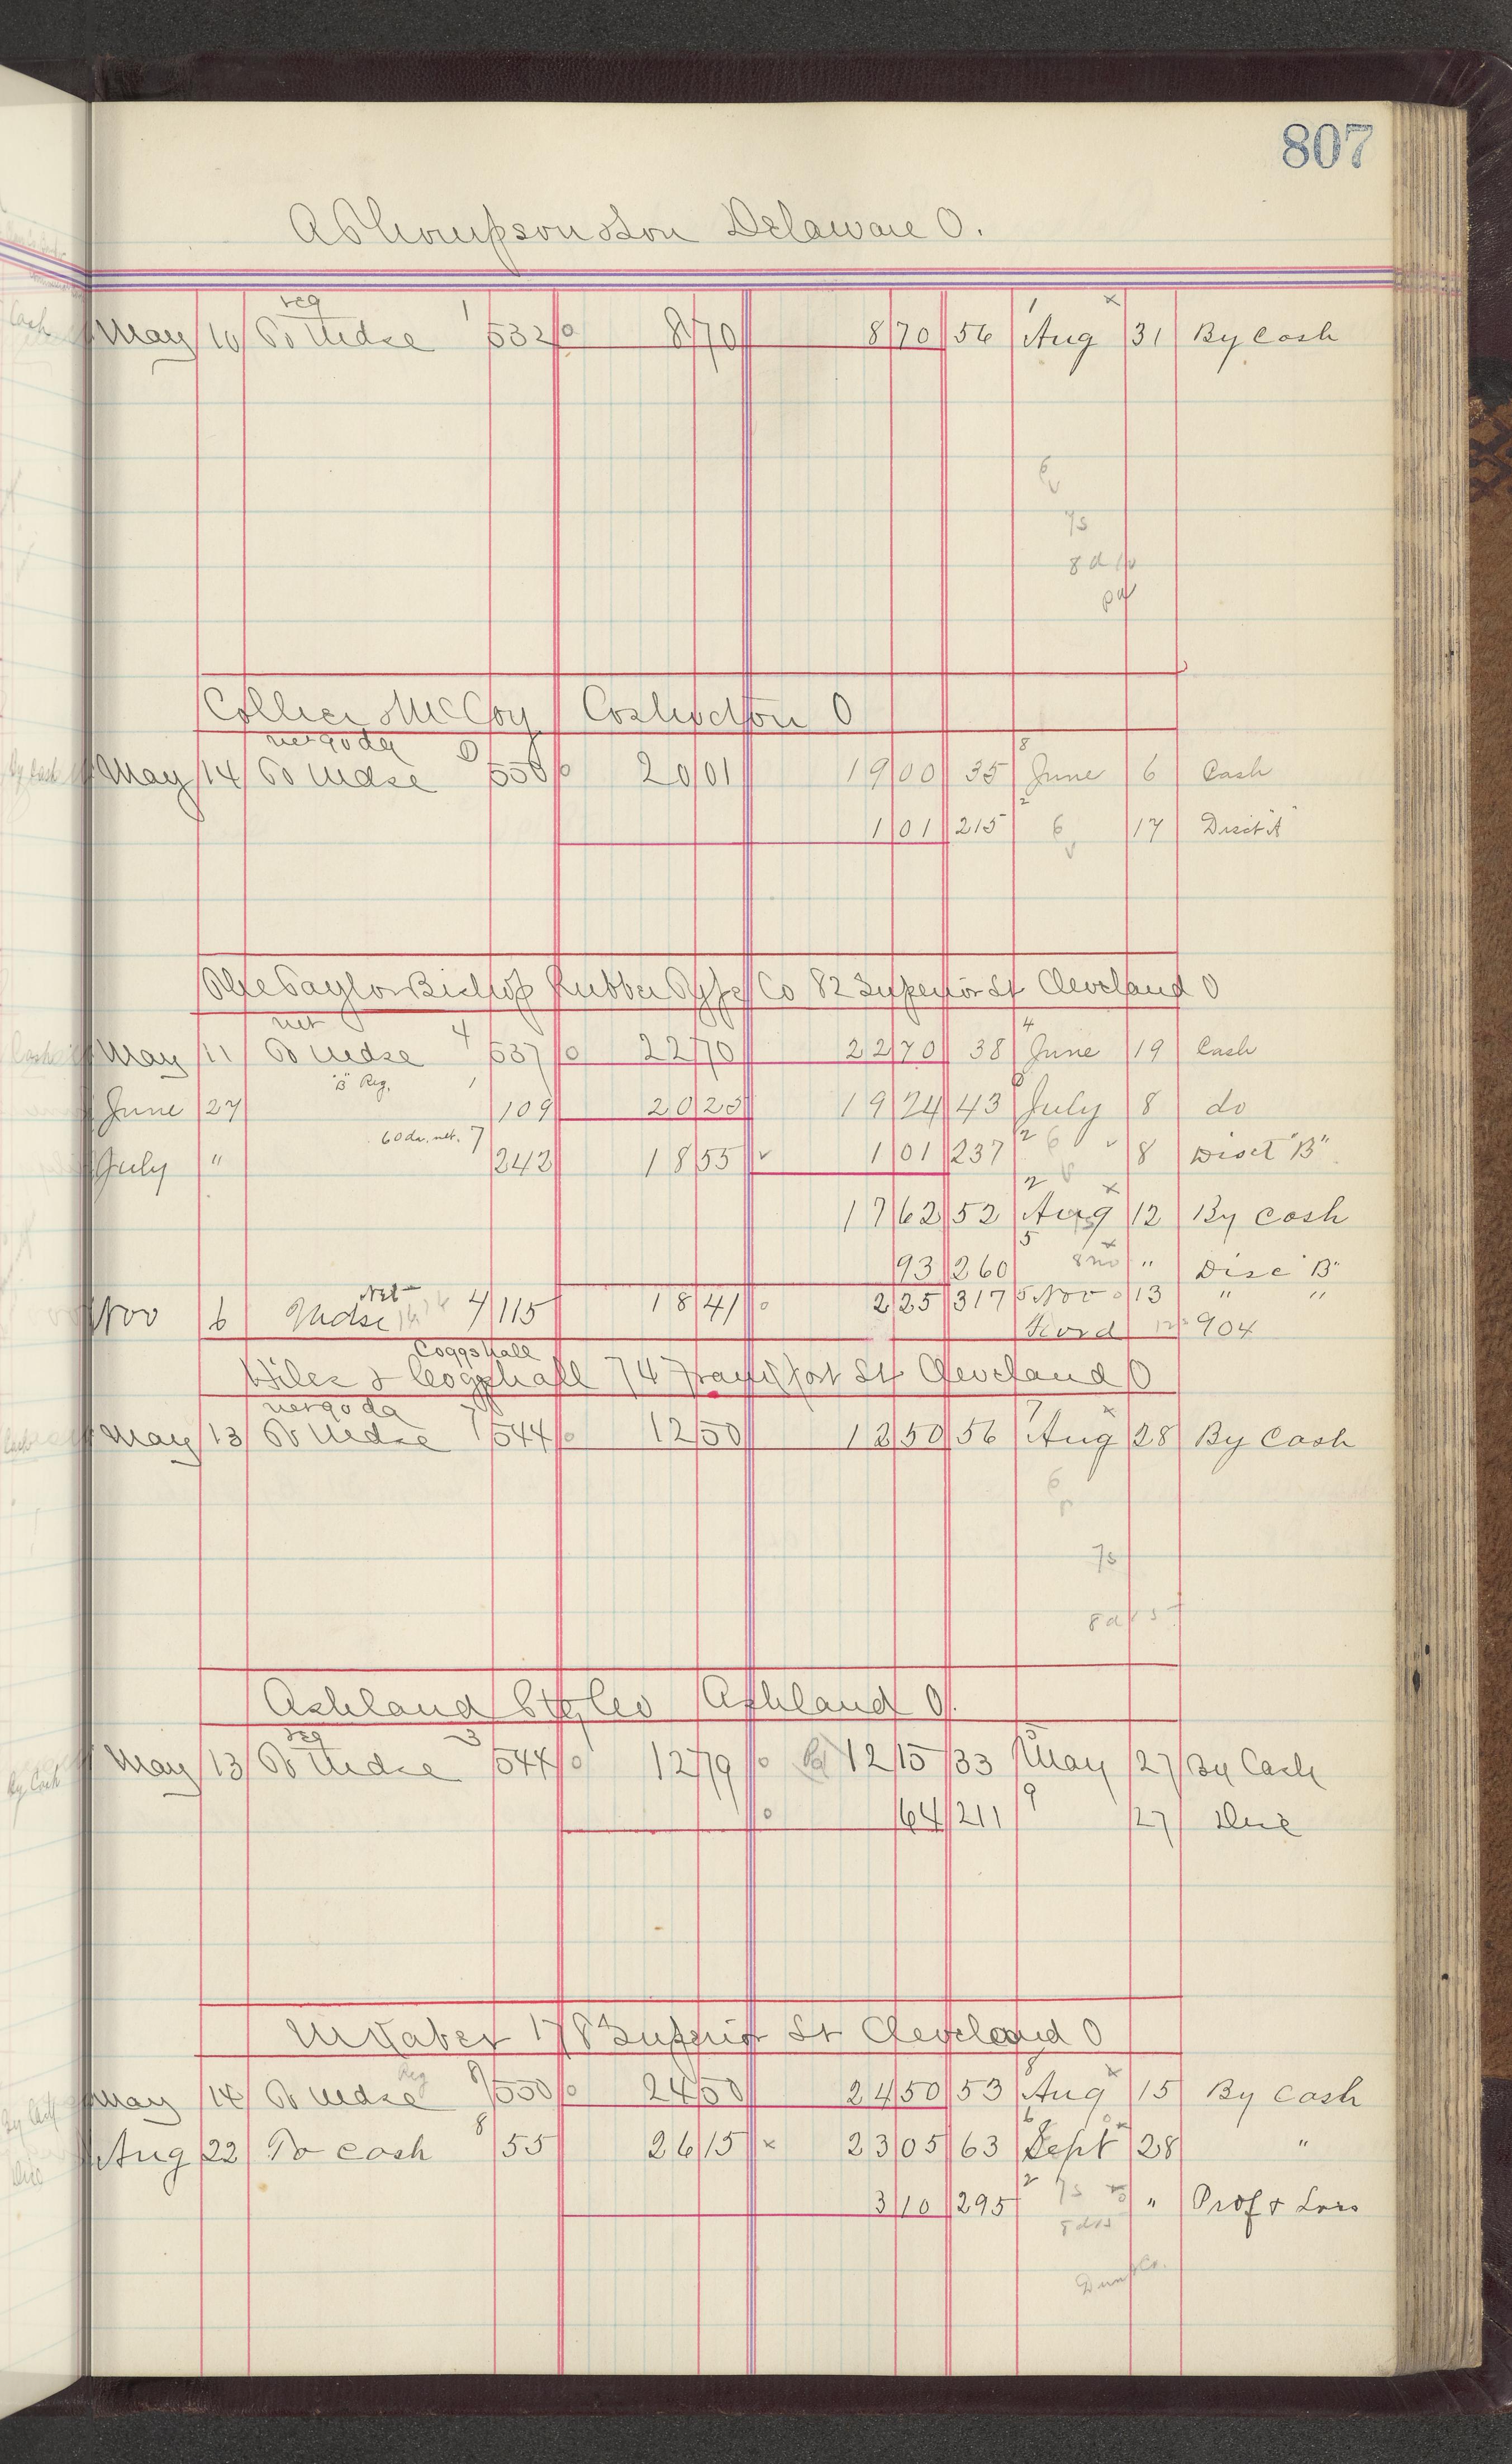 807
A Thompson & Son Delaware O.
reg 1 x
May 10 To Mdse 532 o 8 70 8 70 56 Aug 31 By Cash
6
7s
8 d
pd
Collier & McCoy Coshocton O
net 90 da 8
May 14 To Mdse 550 o 20 01 19 00 35 June 6 Cash
2
1 01 215 6 17 Disct "A"
The Taylor Bishop Rubber Type Co 82 Superior St Cleveland O
net 4 4
May 11 To Mdse 537 o 22 70 22 70 38 June 19 Cash
"B" Reg. 1
June 27 109 20 25 19 24 43 July 8 do
60 da. net. 7
July " 242 18 55 1 01 237 2 6 8 Disct "B"
2 x
17 62 52 Aug 12 By Cash
5
93 260 " Disc "B"
Net
Nov 6 Mdse 4 115 18 41 o 2 25 317 5 Nov 13 " "
904
Coggshall
Hiles & Coggshall 74 Frankfort St Cleveland O
net 90 da 7 7 x
May 13 To Mdse 544 o 12 50 12 50 56 Aug 28 By Cash
6
7s
8 d 15
Ashland Ashland O.
reg 3 5
May 13 To Mdse 544 o 12 79 o 12 15 33 May 27 By Cash
9
o 64 211 27 Disc
178 Superior St Cleveland O
Reg 8 x
May 14 To Mdse 550 o 24 50 24 50 53 Aug 15 By Cash
8 6
Aug 22 To Cash 55 26 15 x 23 05 63 Sept 28 "
2 7s
3 10 295 " Prof & Loss
Dun & Co.